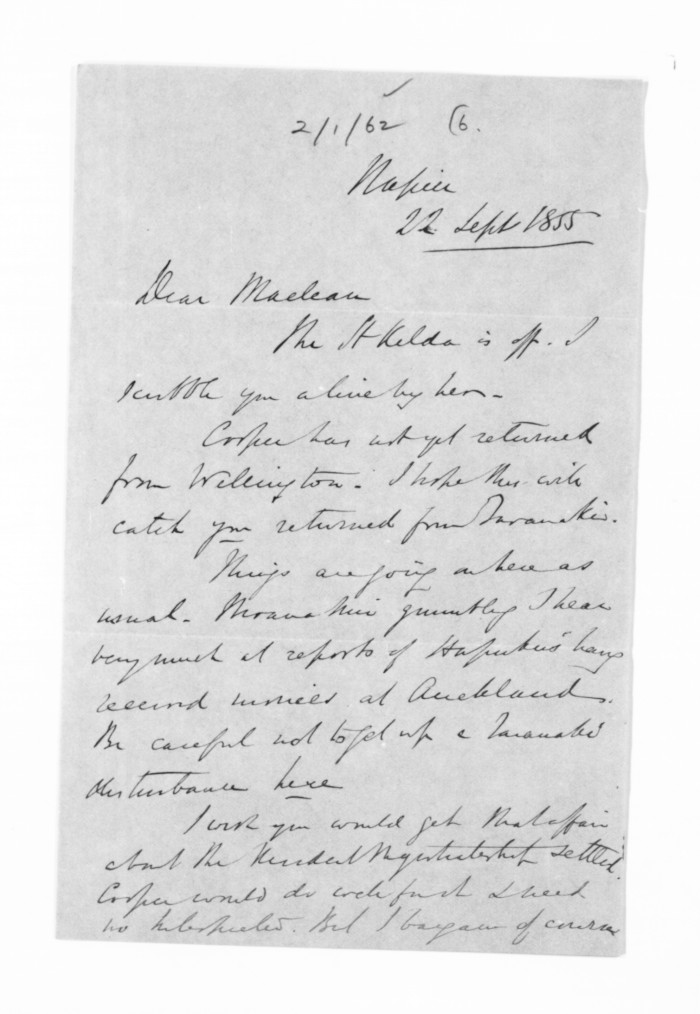 2/1/62 (6.
Napier
22 Sept 1855
Dear Maclean
The St Kilda is off. I
scribble you a line by her -
Cooper has not yet returned
from Wellington. I hope this will
catch you returned from Taranaki.
Things are going on here as
usual. Moananui grumbling I hear
very much at reports of Hapuku's having
received monies at Auckland.
Be careful not to get up a Taranaki
disturbance here
I wish you would get that affair
about the Resident Magistrateship settled.
Cooper would do well for it & need
no interpreter. But I bargain of course